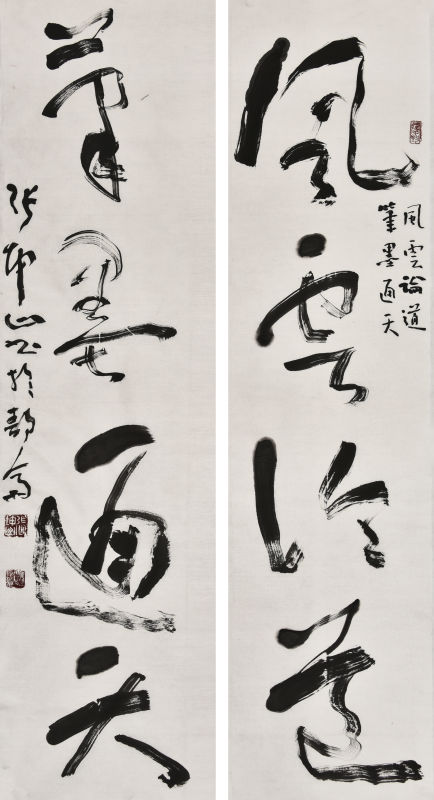 風雲論道
風雲論道
筆墨通天
筆墨通天
張坤山書於靜齋